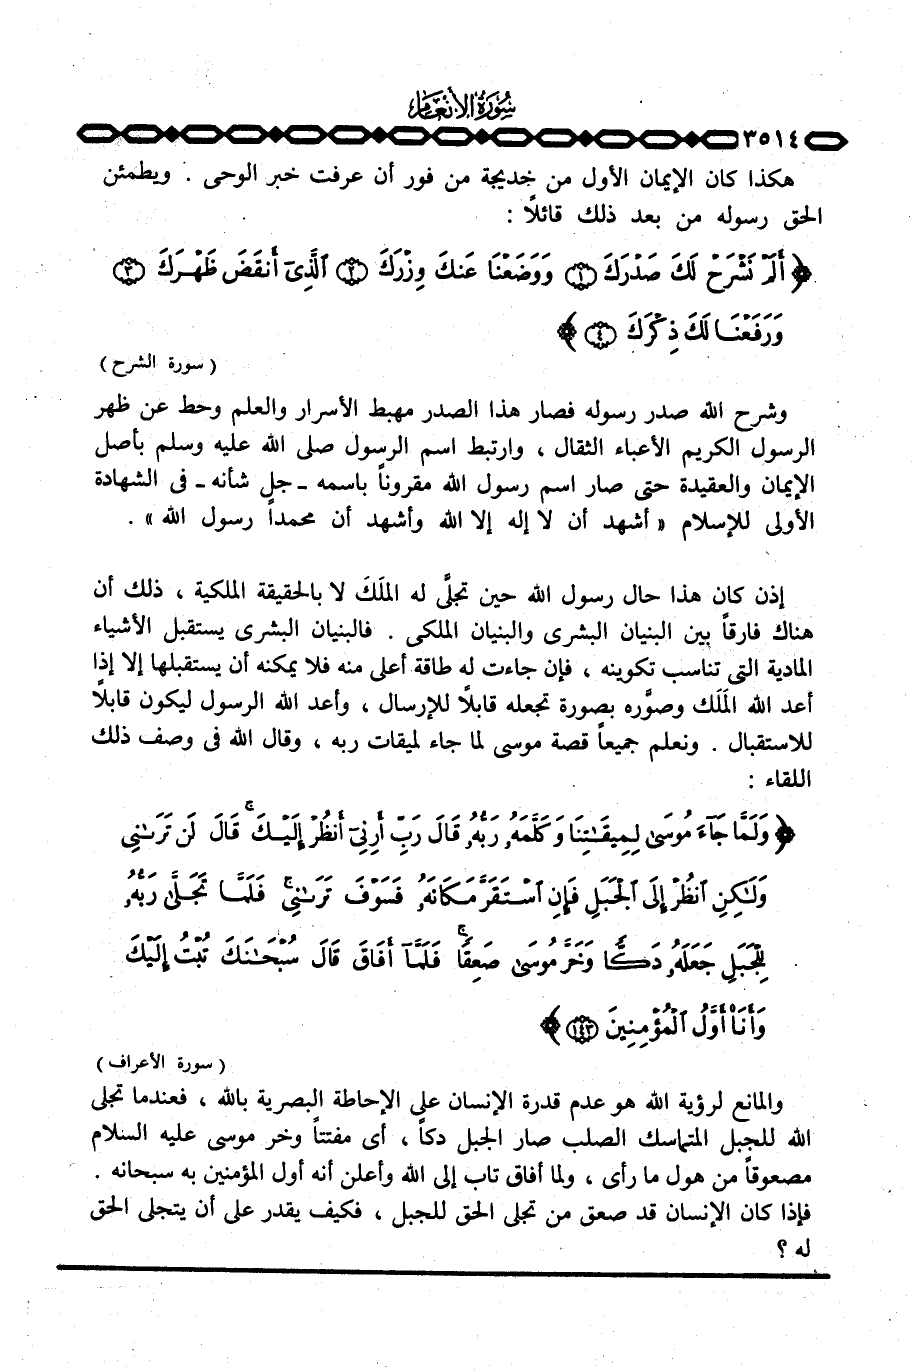 سُورَةُ الأَنْعَام
٣٥١٤
هكذا كان الإيمان الأول من خديجة من فور أن عرفت خبر الوحى . ويطمئن
الحق رسوله من بعد ذلك قائلاً :
﴿ أَلَمْ نَشْرَحْ لَكَ صَدْرَكَ ۝١ وَوَضَعْنَا عَنكَ وِزْرَكَ ۝٢ ٱلَّذِىٓ أَنقَضَ ظَهْرَكَ ۝٣
وَرَفَعْنَا لَكَ ذِكْرَكَ ۝٤ ﴾
( سورة الشرح )
وشرح الله صدر رسوله فصار هذا الصدر مهبط الأسرار والعلم وحط عن ظهر
الرسول الكريم الأعباء الثقال ، وارتبط اسم الرسول صلى الله عليه وسلم بأصل
الإيمان والعقيدة حتى صار اسم رسول الله مقروناً باسمه ـ جل شأنه ـ فى الشهادة
الأولى للإسلام « أشهد أن لا إله إلا الله وأشهد أن محمداً رسول الله » .
إذن كان هذا حال رسول الله حين تجلَّى له الملَكَ لا بالحقيقة الملكية ، ذلك أن
هناك فارقاً بين البنيان البشرى والبنيان الملكى . فالبنيان البشرى يستقبل الأشياء
المادية التى تناسب تكوينه ، فإن جاءت له طاقة أعلى منه فلا يمكنه أن يستقبلها إلا إذا
أعد الله المَلَك وصوَّره بصورة تجعله قابلاً للإرسال ، وأعد الله الرسول ليكون قابلاً
للاستقبال . ونعلم جميعاً قصة موسى لما جاء لميقات ربه ، وقال الله فى وصف ذلك
اللقاء :
﴿ وَلَمَّا جَآءَ مُوسَىٰ لِمِيقَـٰتِنَا وَكَلَّمَهُۥ رَبُّهُۥ قَالَ رَبِّ أَرِنِىٓ أَنظُرْ إِلَيْكَ ۚ قَالَ لَن تَرَىٰنِى
وَلَـٰكِنِ ٱنظُرْ إِلَى ٱلْجَبَلِ فَإِنِ ٱسْتَقَرَّ مَكَانَهُۥ فَسَوْفَ تَرَىٰنِى ۚ فَلَمَّا تَجَلَّىٰ رَبُّهُۥ
لِلْجَبَلِ جَعَلَهُۥ دَكًّا وَخَرَّ مُوسَىٰ صَعِقًا ۚ فَلَمَّآ أَفَاقَ قَالَ سُبْحَـٰنَكَ تُبْتُ إِلَيْكَ
وَأَنَا۠ أَوَّلُ ٱلْمُؤْمِنِينَ ۝١٤٣ ﴾
( سورة الأعراف )
والمانع لرؤية الله هو عدم قدرة الإنسان على الإحاطة البصرية بالله ، فعندما تجلى
الله للجبل المتماسك الصلب صار الجبل دكاً ، أى مفتتاً وخر موسى عليه السلام
مصعوقاً من هول ما رأى ، ولما أفاق تاب إلى الله وأعلن أنه أول المؤمنين به سبحانه .
فإذا كان الإنسان قد صعق من تجلى الحق للجبل ، فكيف يقدر على أن يتجلى الحق
له ؟